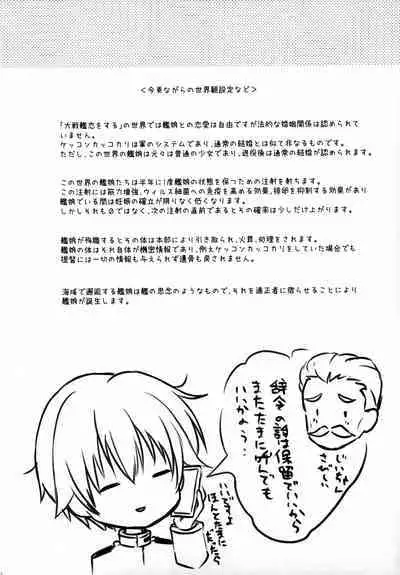 <今更ながらの世界観設定など>
「大戦艦恋をする」の世界では艦娘との恋愛は自由ですが法的な婚姻関係は認められて
いません。
ケッコンカッコカリは軍のシステムであり、通常の結婚とは似て非なるものです。
ただし、この世界の艦娘は元々は普通の少女であり、退役後は通常の結婚が認められています。
この世界の艦娘たちは半年に1度艦娘の状態を保つための注射を射ちます。
この注射には筋力増強、ウィルス細菌への免疫を高める効果、排卵を抑制する効果があり
艦娘でいる間は妊娠の確立が限りなく低くなります。
しかしそれもゼロではなく、次の注射の直前であるとその確率は少しだけ上がります。
艦娘が殉職するとその体は本部により引き取られ、火葬、処理をされます。
艦娘の体はそれ自体が機密情報であり、例えケッコンカッコカリをしていた場合でも
提督には一切の情報も与えられず遺骨も戻されません。
海域で邂逅する艦娘は艦の思念のようなもので、それを適正者に宿らせることにより
艦娘が誕生します。
辞令の話は保留でいいから
またたまに呼んでも
いいかよう…
じいちゃん
さびしい
いいですよ
ほんとたまに
だったら